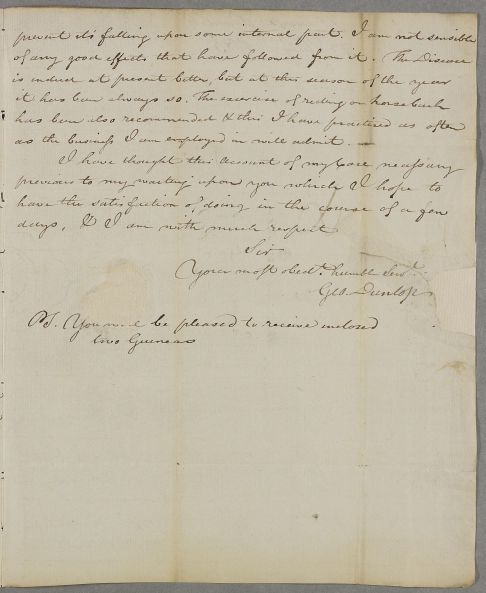 prevent its falling upon some internal part. I am not sensible
of any good effects that have followed from it. The Disease
is indeed at present better, but at this season of the year
it has been always so. The exercise of riding on horseback
has been also recommended & this I have practised as often
as the business I am employed in will admit. —
I have thought this account of my Case necessary
previous to my waiting upon you which I hope to
have the satisfaction of doing in the course of a few
days, & I am with much respect
Sir
Your most obedt. humble Servt.
Geo. Dunlop
PS. You will be pleased to receive inclosed
two Guineas